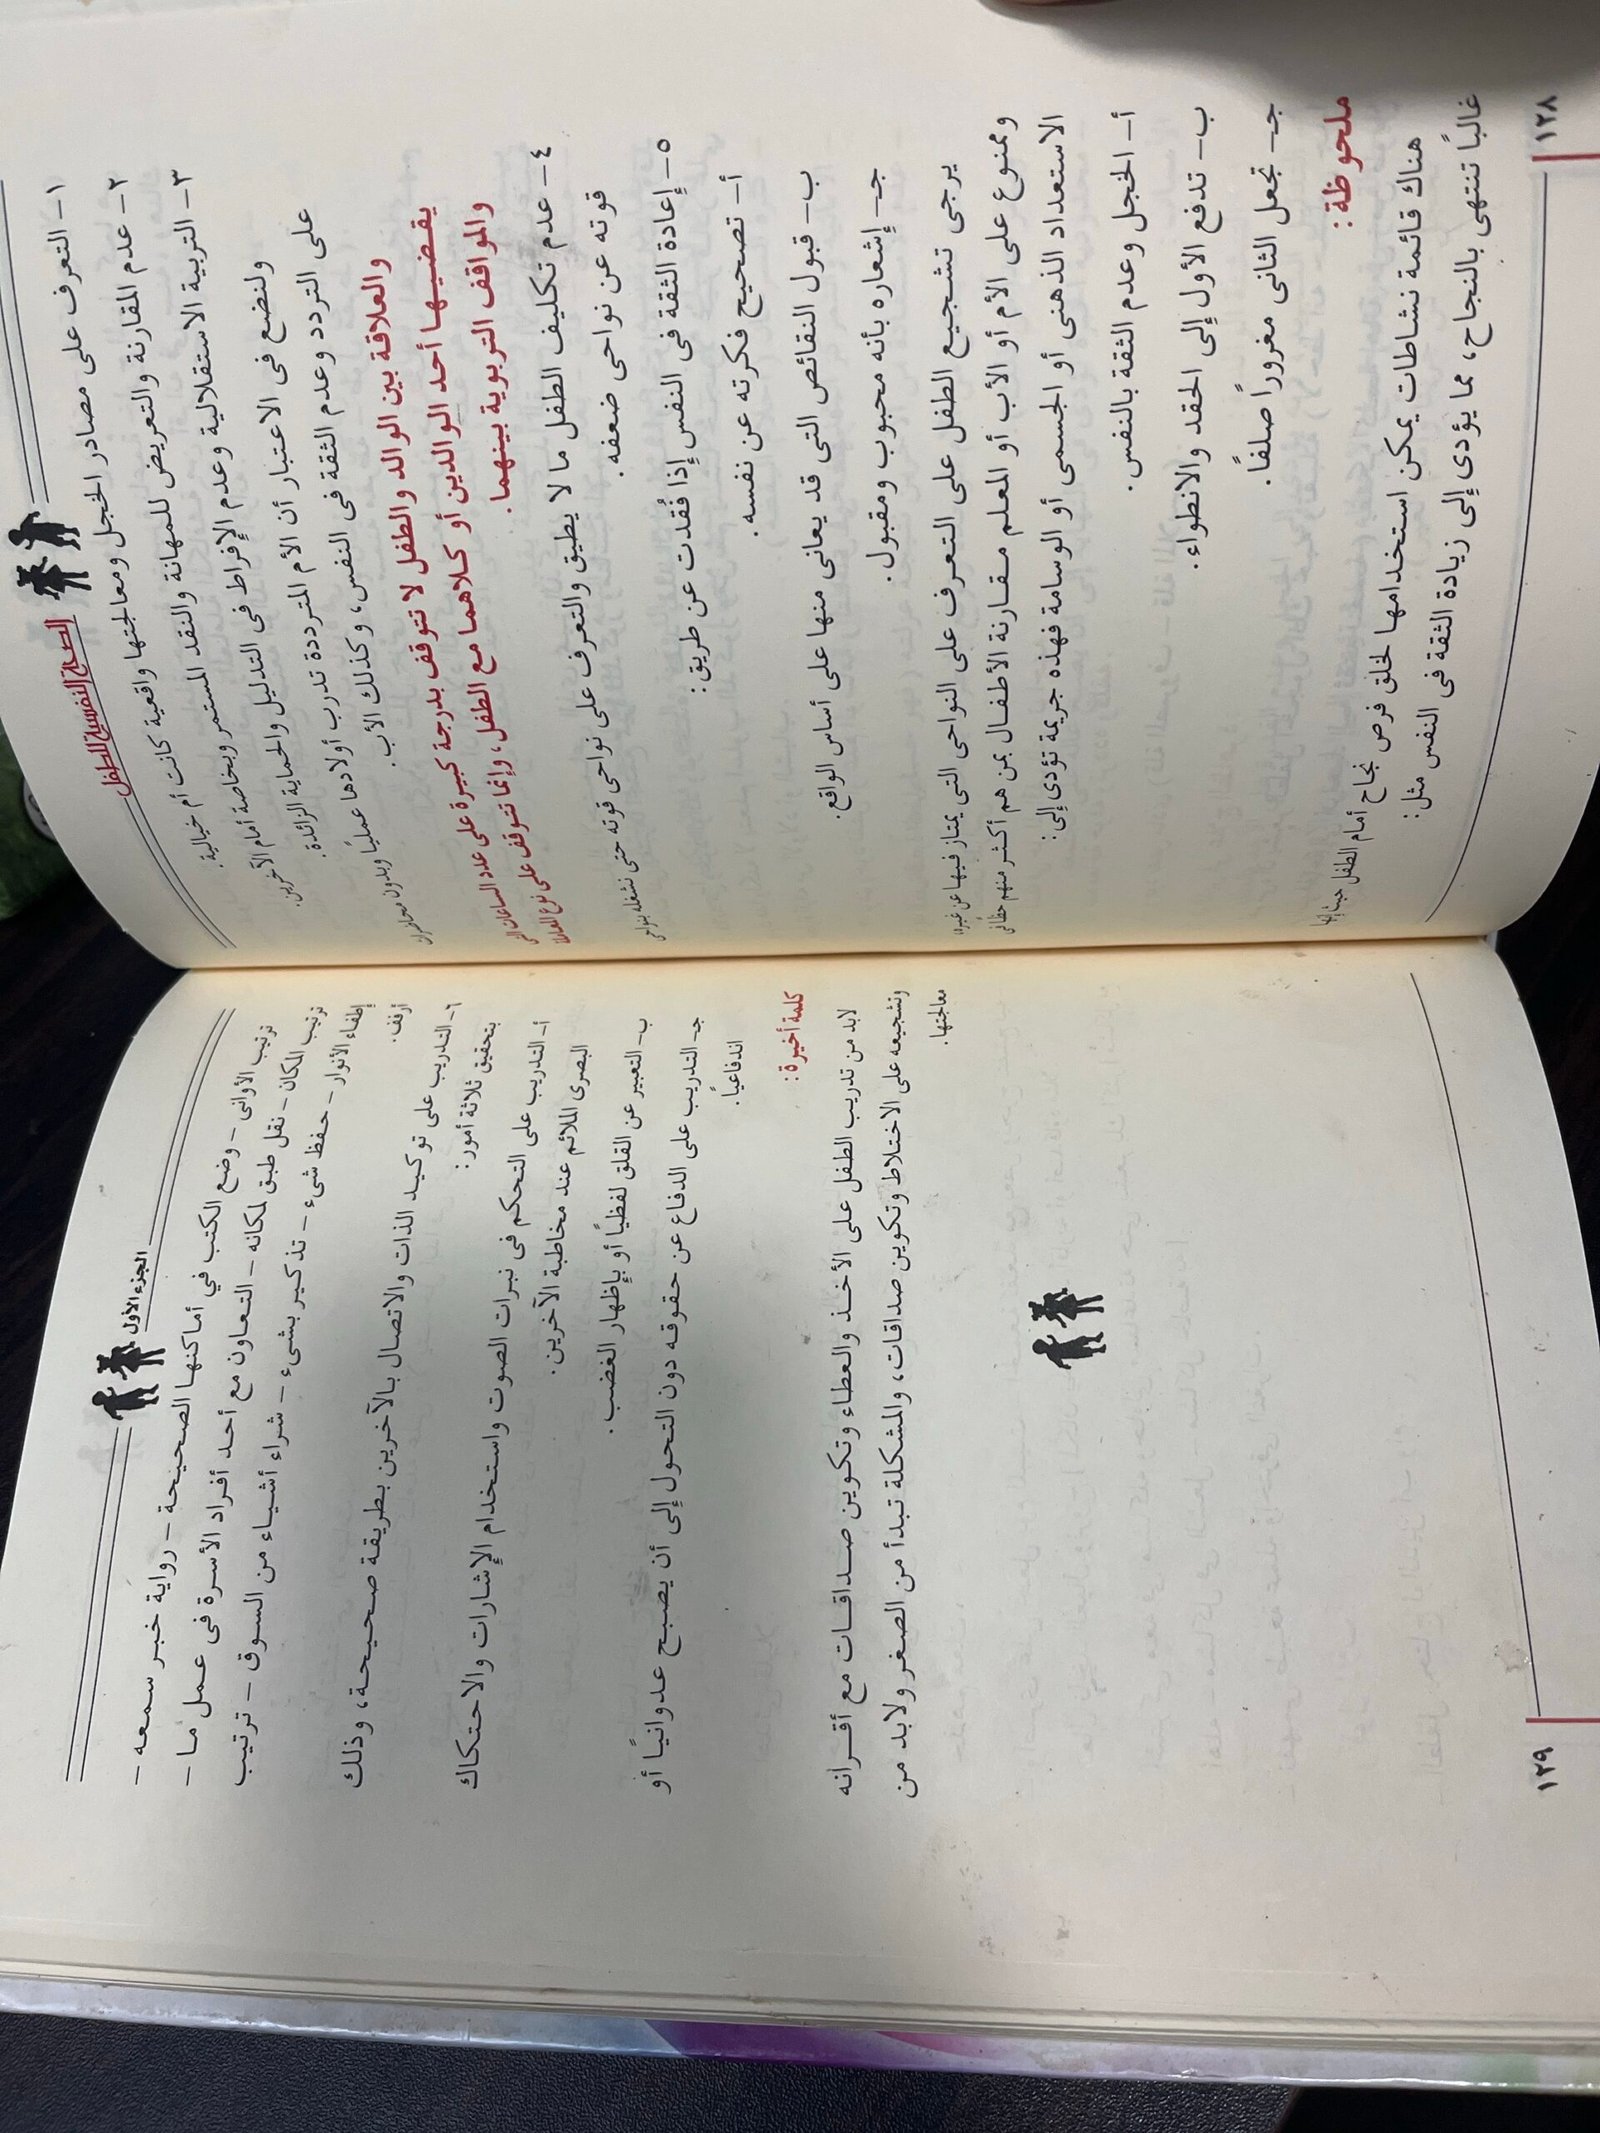 الصحة النفسية للطفل
١- التعرف على مصادر الخجل ومعالجتها واقعية كانت أم خيالية.
٢- عدم المقارنة والتعريض للمهانة والنقد المستمر وبخاصة أمام الآخرين.
٣- التربية الاستقلالية وعدم الإفراط فى التدليل والحماية الزائدة.
ولنضع فى الاعتبار أن الأم المترددة تدرب أولادها عمليًا وبدون محاضرات
على التردد وعدم الثقة فى النفس، وكذلك الأب.
والعلاقة بين الوالد والطفل لا تتوقف بدرجة كبيرة على عدد الساعات التى
يقضيها أحد الوالدين أو كلاهما مع الطفل، وإنما تتوقف على نوع المعاملة
والمواقف التربوية بينهما.
٤- عدم تكليف الطفل ما لا يطيق والتعرف على نواحى قوته حتى نشغله بنواحى
قوته عن نواحى ضعفه.
٥- إعادة الثقة فى النفس إذا فُقدت عن طريق:
أ- تصحيح فكرته عن نفسه.
ب- قبول النقائص التى قد يعانى منها على أساس الواقع.
جـ- إشعاره بأنه محبوب ومقبول.
يرجى تشجيع الطفل على التعرف على النواحى التى يمتاز فيها عن غيره
وممنوع على الأم أو الأب أو المعلم مقارنة الأطفال بمن هم أكثر منهم حظًا فى
الاستعداد الذهنى أو الجسمى أو الوسامة فهذه جريمة تؤدى إلى:
أ- الخجل وعدم الثقة بالنفس.
ب- تدفع الأول إلى الحقد والانطواء.
جـ- تجعل الثانى مغرورًا صلفًا.
ملحوظة:
هناك قائمة نشاطات يمكن استخدامها لخلق فرص نجاح أمام الطفل حيث إنها
غالبًا تنتهى بالنجاح، مما يؤدى إلى زيادة الثقة فى النفس مثل:
١٢٨
الجزء الأول
ترتيب الأوانى - وضع الكتب في أماكنها الصحيحة - رواية خبر سمعه -
ترتيب المكان - نقل طبق لمكانه - التعاون مع أحد أفراد الأسرة فى عمل ما -
إطفاء الأنوار - حفظ شىء - تذكير بشىء - شراء أشياء من السوق - ترتيب
أرفف.
٦- التدريب على توكيد الذات والاتصال بالآخرين بطريقة صحيحة، وذلك
بتحقيق ثلاثة أمور:
أ- التدريب على التحكم فى نبرات الصوت واستخدام الإشارات والاحتكاك
البصرى الملائم عند مخاطبة الآخرين.
ب- التعبير عن القلق لفظيًا أو بإظهار الغضب.
جـ- التدريب على الدفاع عن حقوقه دون التحول إلى أن يصبح عدوانيًا أو
اندفاعيًا.
كلمة أخيرة:
لابد من تدريب الطفل على الأخذ والعطاء وتكوين صداقات مع أقرانه
وتشجيعه على الاختلاط وتكوين صداقات، والمشكلة تبدأ من الصغر ولابد من
معالجتها.
١٢٩